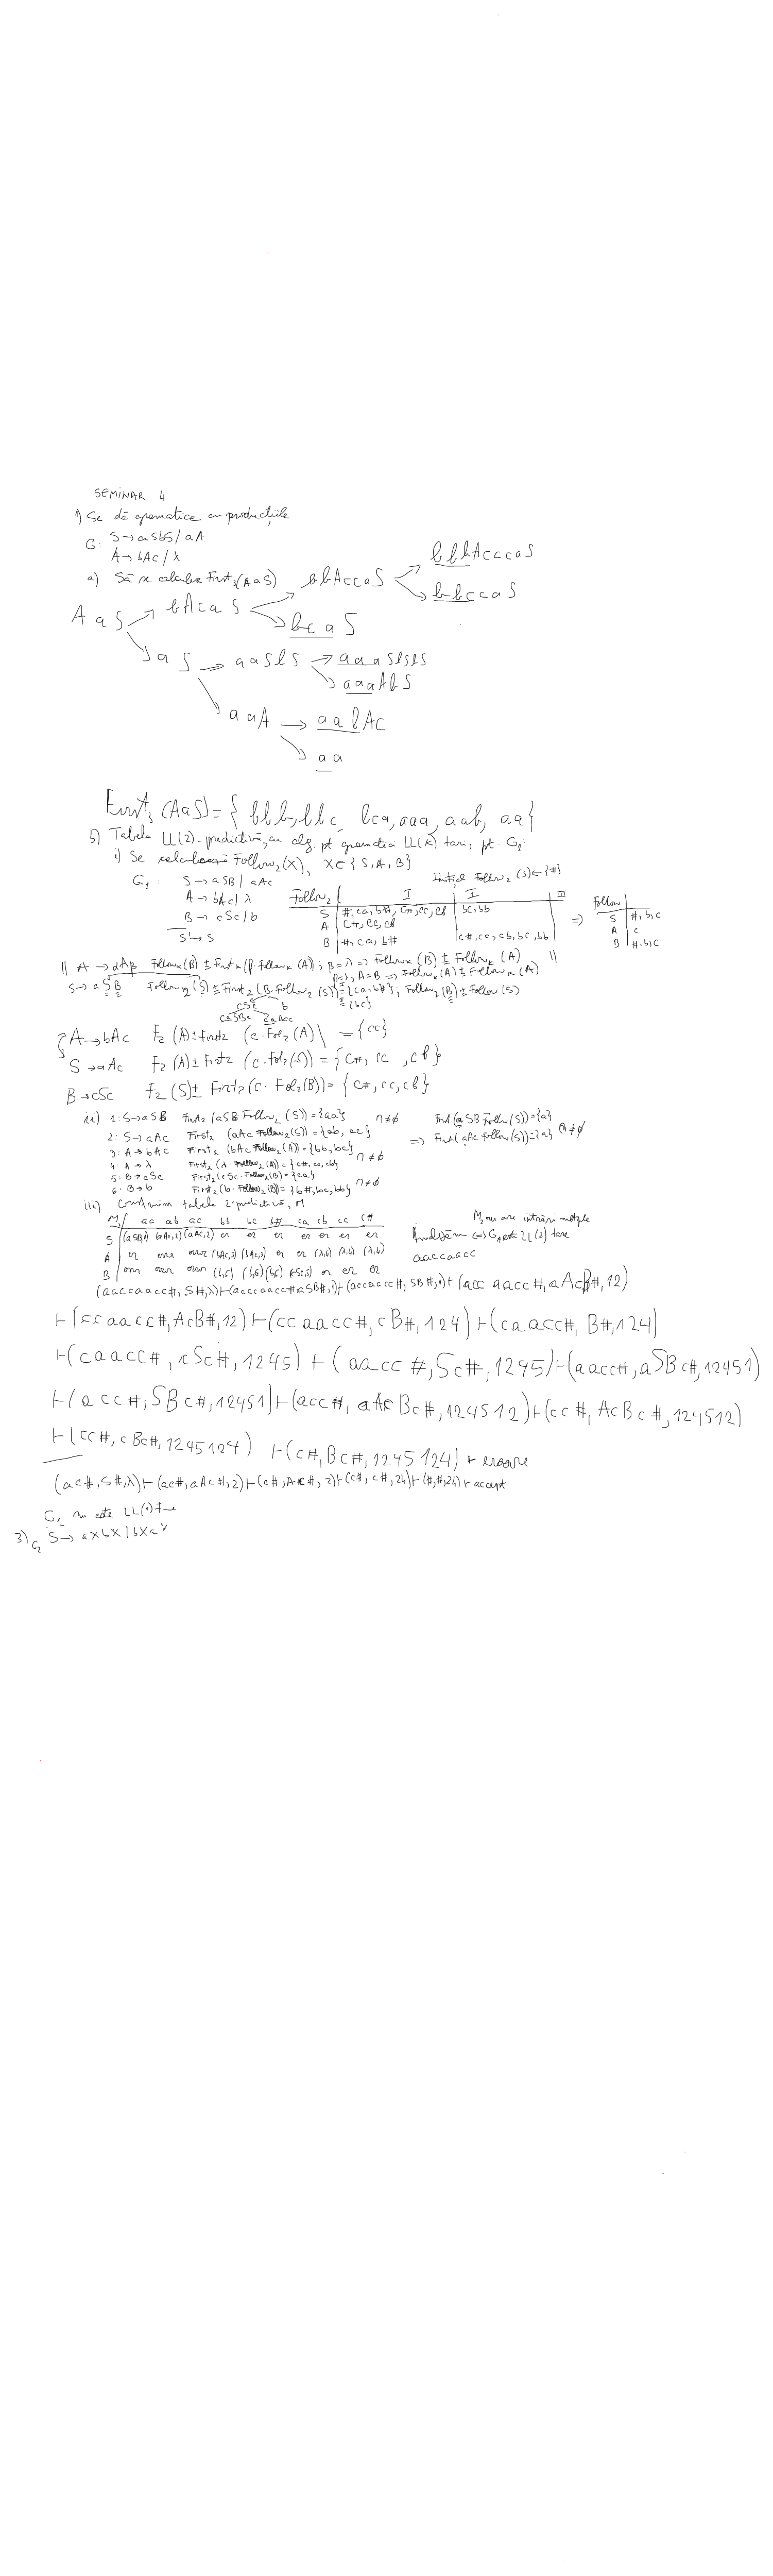 SEMINAR 4
1) Se dă gramatica cu producțiile
G: S→aSbS / aA
A→bAc / λ
a) Să se calculeze First₃(AaS)
AaS → bAcaS → bbAccaS → bbbAcccaS
→ bbccaS
→ bcaS
→ aS → aaSbS → aaaSbSbS
→ aaaAbS
→ aaA → aabAc
→ aa
First₃(AaS) = {bbb, bbc, bca, aaa, aab, aa}
b) Tabela LL(2)-predictivă, cu alg. pt gramatici LL(k) tari, pt. G₁
i) Se calculează Follow₂(X), X∈{S,A,B}
Inițial Follow₂(S)←{#}
G₁: S→aSB / aAc
A→bAc / λ
B→cSc / b
S'→S
Follow₂ | I | II | III
S | #, ca, b#, c#, cc, cb | bc, bb
A | c#, cc, cb
B | #, ca, b# | c#, cc, cb, bc, bb
⇒ Follow
S | #, b, c
A | c
B | #, b, c
|| A→αBβ Followₖ(B) ± Firstₖ(β·Followₖ(A)); β=λ ⇒ Followₖ(B) ± Followₖ(A) ||
β=λ, A=B ⇒ Followₖ(A) ± Followₖ(A)
S→aSB Follow₂(S) ± First₂(B·Follow₂(S)) = {ca, b#}, Follow₂(B) ± Follow(S)
cSc b = {bc}
caSBc caAcc
A→bAc F₂(A) ± First₂(c·Fol₂(A)) = {cc}
S→aAc F₂(A) ± First₂(c·Fol₂(S)) = {c#, cc, cb}
B→cSc F₂(S) ± First₂(c·Fol₂(B)) = {c#, cc, cb}
ii) 1: S→aSB First₂(aSB Follow₂(S)) = {aa} ∩≠∅ First(aSB Follow(S)) = {a}
2: S→aAc First₂(aAc Follow₂(S)) = {ab, ac} ⇒ First(aAc Follow(S)) = {a} ∩≠∅
3: A→bAc First₂(bAc Follow₂(A)) = {bb, bc} ∩≠∅
4: A→λ First₂(λ·Follow₂(A)) = {c#, cc, cb}
5: B→cSc First₂(cSc·Follow₂(B)) = {ca}
6: B→b First₂(b·Follow₂(B)) = {b#, bc, bb} ∩≠∅
iii) Construim tabela 2-predictivă, M
M₂ | ac ab ac bb bc b# ca cb cc c# M₂ nu are intrări multiple
S | (aSB,1) (aAc,2) (aAc,2) er er er er er er er ⇔ G₁ este LL(2) tare
A | er eroare eroare (bAc,3) (bAc,3) er er (λ,4) (λ,4) (λ,4) aaccaacc
B | eroare eroare eroare (b,6) (b,6) (b,6) (cSc,5) er er er
(aaccaacc#, S#, λ) ⊢ (aaccaacc#, aSB#, 1) ⊢ (accaacc#, SB#, 1) ⊢ (accaacc#, aAcB#, 12)
⊢ (ccaacc#, AcB#, 12) ⊢ (ccaacc#, cB#, 124) ⊢ (caacc#, B#, 124)
⊢ (caacc#, cSc#, 1245) ⊢ (aacc#, Sc#, 1245) ⊢ (aacc#, aSBc#, 12451)
⊢ (acc#, SBc#, 12451) ⊢ (acc#, aAcBc#, 124512) ⊢ (cc#, AcBc#, 124512)
⊢ (cc#, cBc#, 1245124) ⊢ (c#, Bc#, 1245124) ⊢ eroare
(ac#, S#, λ) ⊢ (ac#, aAc#, 2) ⊢ (c#, Ac#, 2) ⊢ (c#, c#, 24) ⊢ (#, #, 24) ⊢ accept
G₁ nu este LL(1) tare
3) G₂ S→aXbX | bXaX